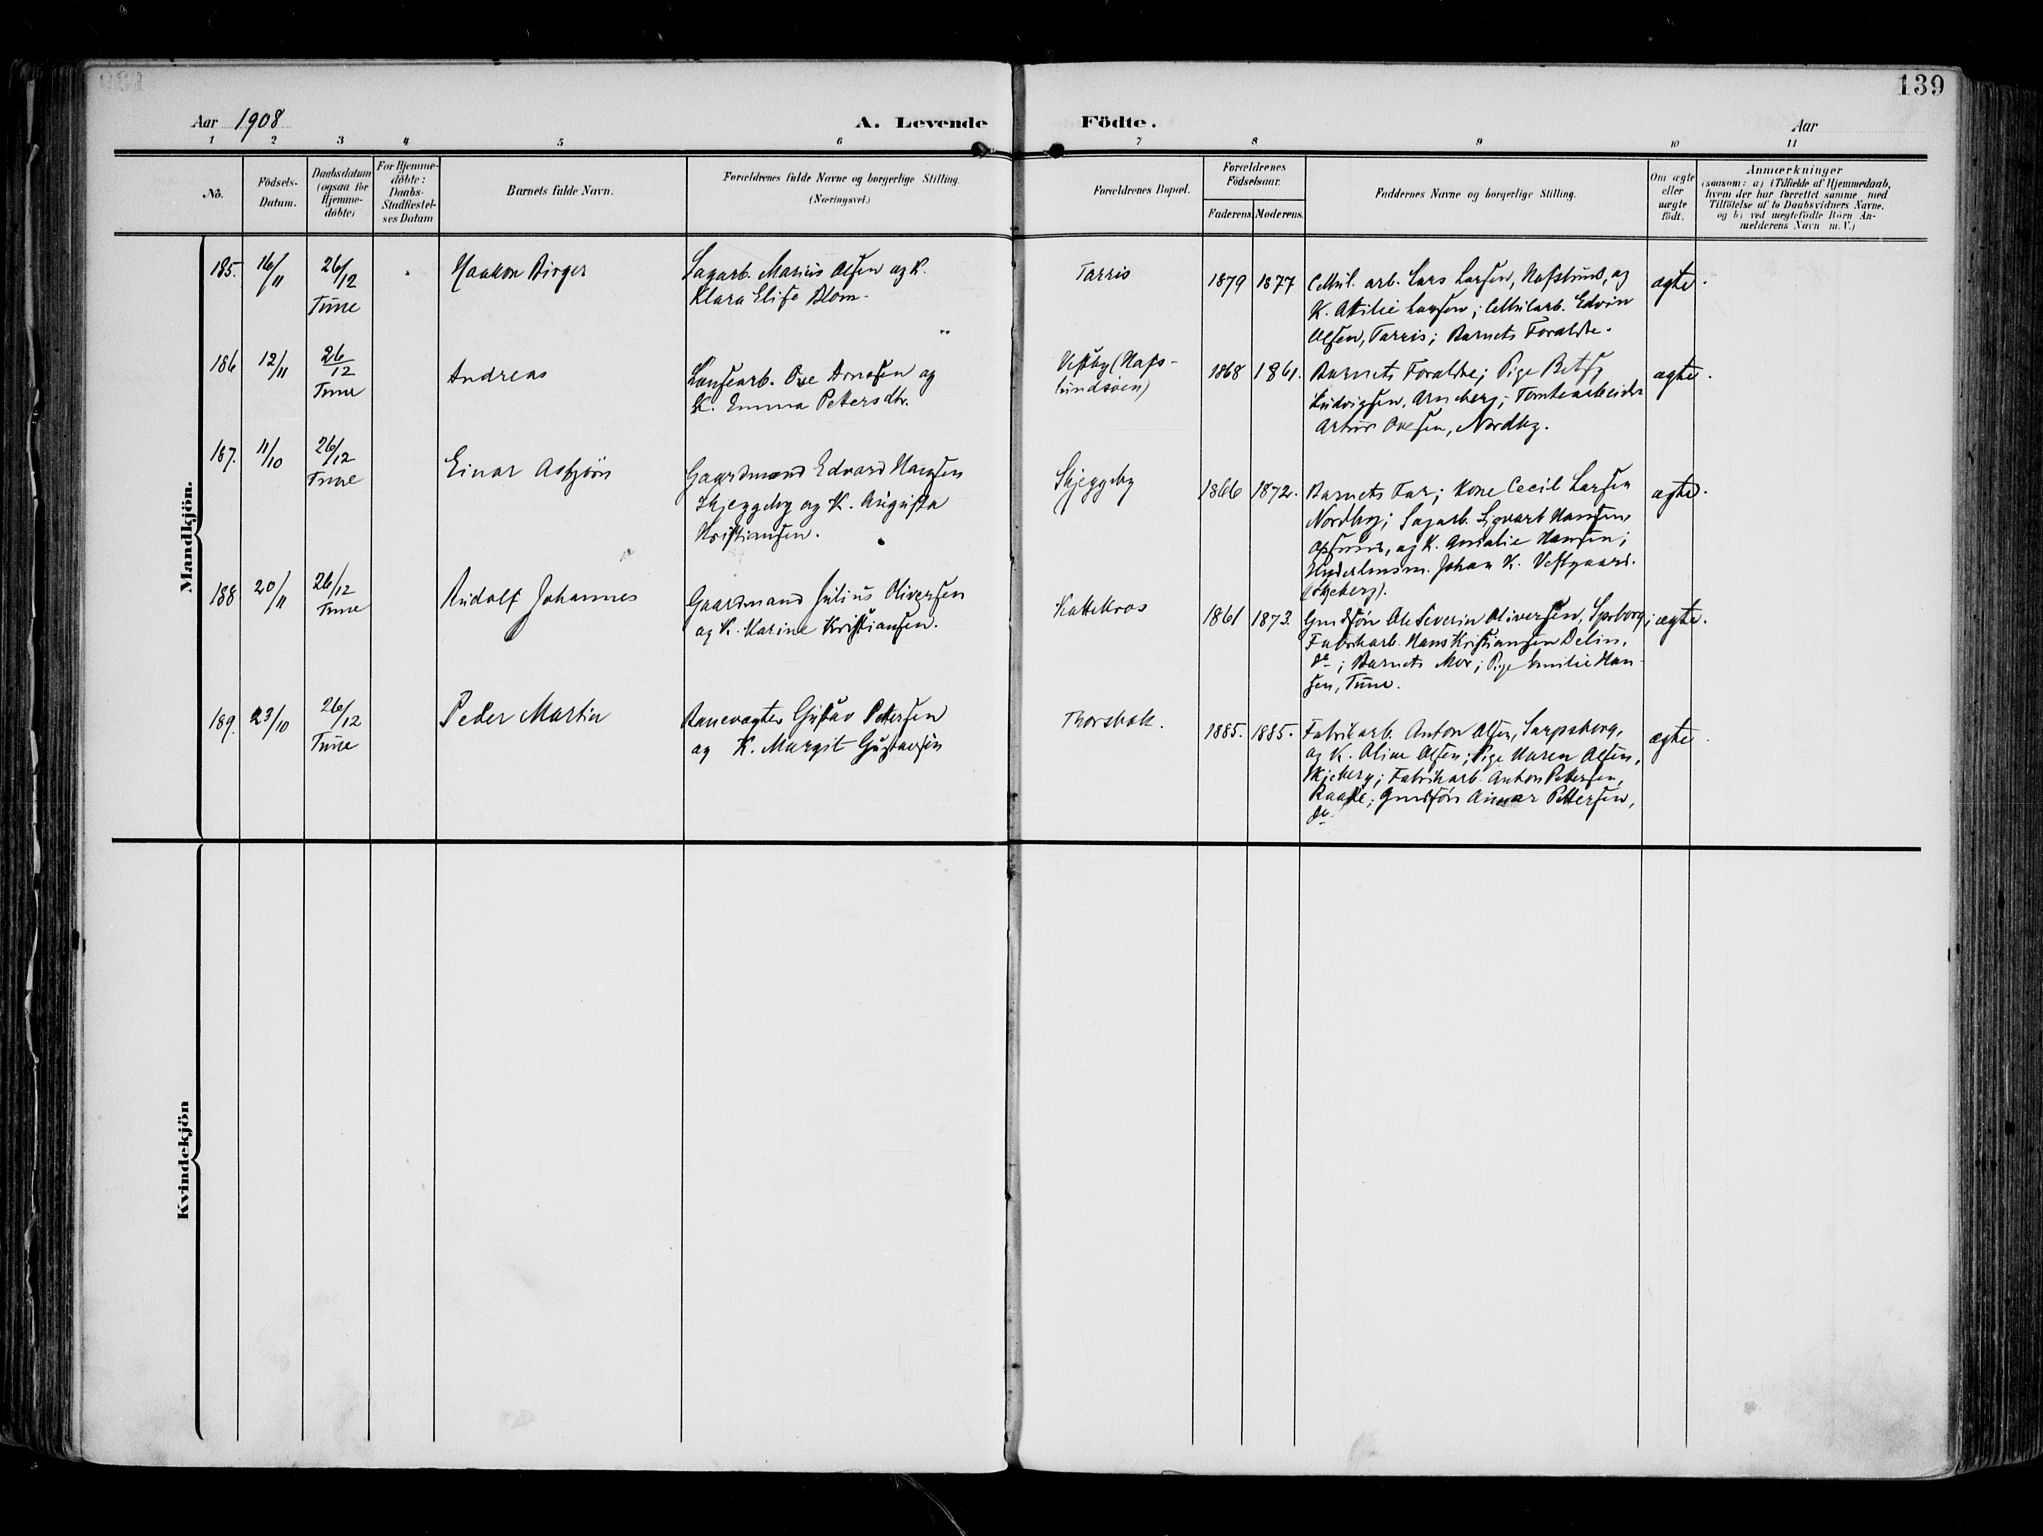 139
Aar 1908 A. Levende Födte. Aar
1 2 3 4 5 6 7 8 9 10 11
No. Födsels-Datum. Daabsdatum (ogsaa for Hjemme-döbte) For Hjemme-döbte: Daabs-Stadfæstel-ses Datum Barnets fulde Navn. Forældrenes fulde Navne og borgerlige Stilling. (Næringsvei.) Forældrenes Bopæl. Forældrenes Födselsaar. Faderens. Moderens. Faddernes Navne og borgerlige Stilling. Om ægte eller uægte födt. Anmærkninger (saasom: a) i Tilfælde af Hjemmedaab, hvem der har forrettet samme, med Tilföielse af to Daabsvidners Navne. og b) ved uægtefödte Börn An-melderens Navn m. V.)
Mandkjön.
185. 16/11 26/12 Tune Haakon Birger Sagarb. Marius Olsen og K.
Klara Elise Blom.
Tarris 1879 1877 Cellul. arb. Lars Larsen, Hafslund, og
K. Attilie Larsen; Cellularb. Edvin
Olsen, Tarris; Barnets Forældre.
ægte.
186 12/11 26/12 Tune Andreas Lensearb. Ove Arnesen og
K. Emma Pettersdtr.
Vestby (Hafs-
lundsøen)
1868 1861. Barnets Forældre; Pige Betsy
Ludvigsen, Arneberg; Tomtearbeider
Artur Ovesen, Nordby.
ægte.
187. 11/10 26/12 Tune Einar Asbjørn Gaardmand Edvard Hansen
Skjeggeby og K. Augusta
Kristiansen.
Skjeggeby 1866 1872. Barnets Far; Kone Cecil Larsen
Nordby; Sagarb. Sigvart Hansen,
Opsund, og K. Amalie Hansen;
Johan K. Vestgaard.
(Skjeberg).
ægte.
188 20/11 26/12 Tune Rudolf Johannes Gaardmand Julius Oliversen
og K. Karine Kristiansen.
Kattekros 1861 1873. Gmdsøn Ole Severin Oliversen, Sprborg;
Fabrikarb. Hans Kristiansen Delin,
do; Barnets Mor; Pige Emilie Han-
sen, Tune.
ægte.
189. 23/10 26/12 Tune Peder Martin Banevagter Gustav Pettersen
og K. Margit Gustavsen
Thorsbæk. 1885. 1885. Fabrikarb. Anton Olsen, Sarpsborg,
og K. Oline Olsen; Pige Maren Olsen,
Skjeberg; Fabrikarb. Anton Pettersen,
Raade; Gmdsøn Pettersen,
do.
ægte.
Kvindekjön